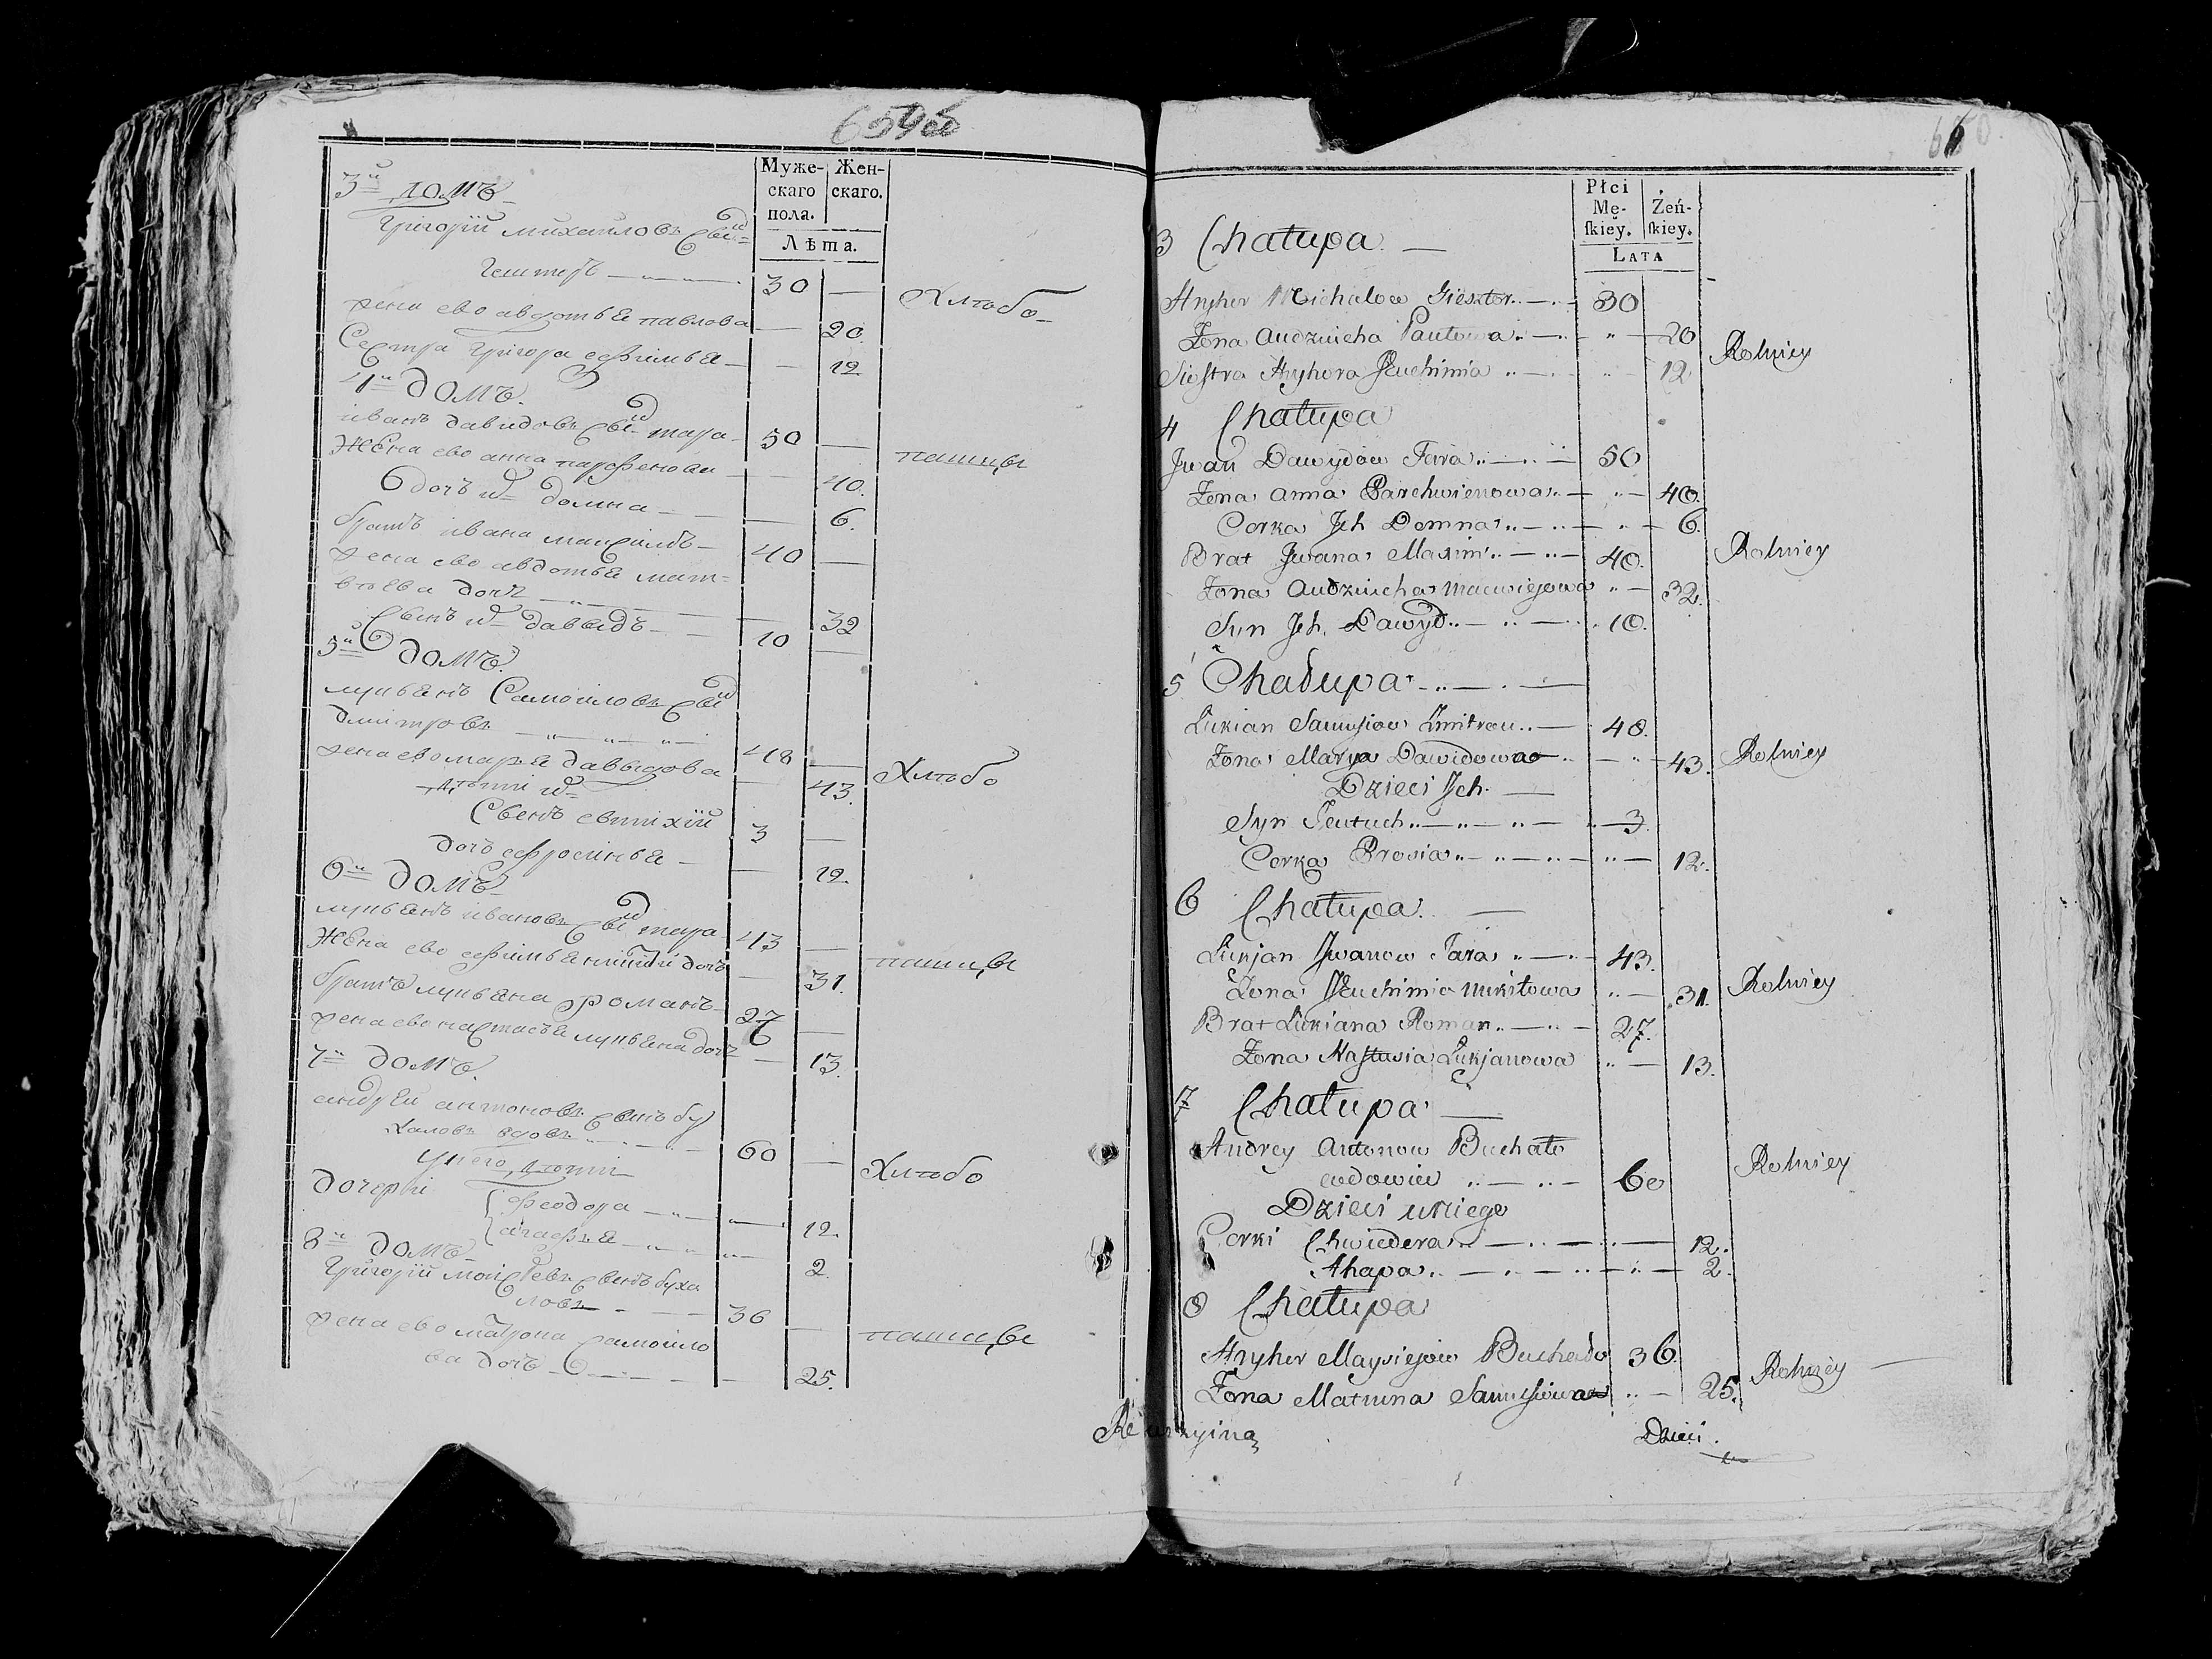 659об
Муже-
скаго
пола.
Жен-
скаго.
Лѣта.
3й домъ
Григорій михайловъ сынъ
гештеръ 30 —
Хлѣбо-
жена ево авдотья павлова — 20.
Сестра Григора ефимья — 12
4й домъ.
иванъ давидовъ сынъ тара 50 —
пашцы
Жена ево анна парфенова — 40.
дочь их домна — 6.
братъ ивана максимъ 40 —
жена ево авдотья мат-
вѣева дочь — 32
сынъ их давыдъ 10 —
5й домъ.
лукьянъ Самойловъ сынъ
дмитровъ 48 —
Хлѣбо
жена ево марья давыдова — 43.
дѣти их
Сынъ евтихій 3 —
дочь ефросинья — 12.
6й домъ
лукьянъ ивановъ сынъ тара 43 —
пашцы
Жена ево ефимья никитина дочь — 31.
братъ лукьяна романъ 27 —
жена ево настасья лукьяна дочь — 13.
7й домъ.
андрей антоновъ сынъ бу
халовъ вдовъ 60 —
Хлѣбо
у него дѣти
дочери феодора — 12.
агафья — 2.
8й домъ
Григорій мойсеевъ сынъ буха
ловъ 36 —
пашцы
жена ево матрона самойло
ва дочь — 25.
660
Płci
Mę-
skiey.
Żeń-
skiey.
LATA
3 Chałupa —
Hryhor Michałow Giesztor 30
Żona Audziucha Pautowa " — 20
Rolniey
Siostra Hryhora Jeuchimia " — 12
4 Chałupa
Jwan Dawydow Tara 50
Żona anna Parchwienowa " — 40.
Corka Jch Domna " — 6.
Brat Jwana Maxim 40.
Rolniey
Żona Audziucha Macwiejowa " — 32.
Syn Jch Dawyd 10.
5 Chałupa
Łukian Samusiow Zmitrou 48.
Żona Marya Dawidowa " — 43.
Rolniey
Dzieci Jch —
Syn Jeutuch 3.
Corka Prosia " — 12.
6 Chałupa. —
Łukjan Jwanow Tara 43.
Żona Jeuchimia Mikitowa " — 31.
Rolniey
Brat Łukiana Roman 27.
Żona Nastasia Łukjanowa " — 13.
7 Chałupa —
Andrey Antonow Buchało
wdowiec 60
Rolniey
Dzieci u niego
Corki Chwiedera 12.
Ahapa 2.
8 Chałupa
Hryhor Maysiejow Buchało 36.
Żona Matruna Samusiowa " — 25.
Rolniey —
Rewizyina
Dzieci.